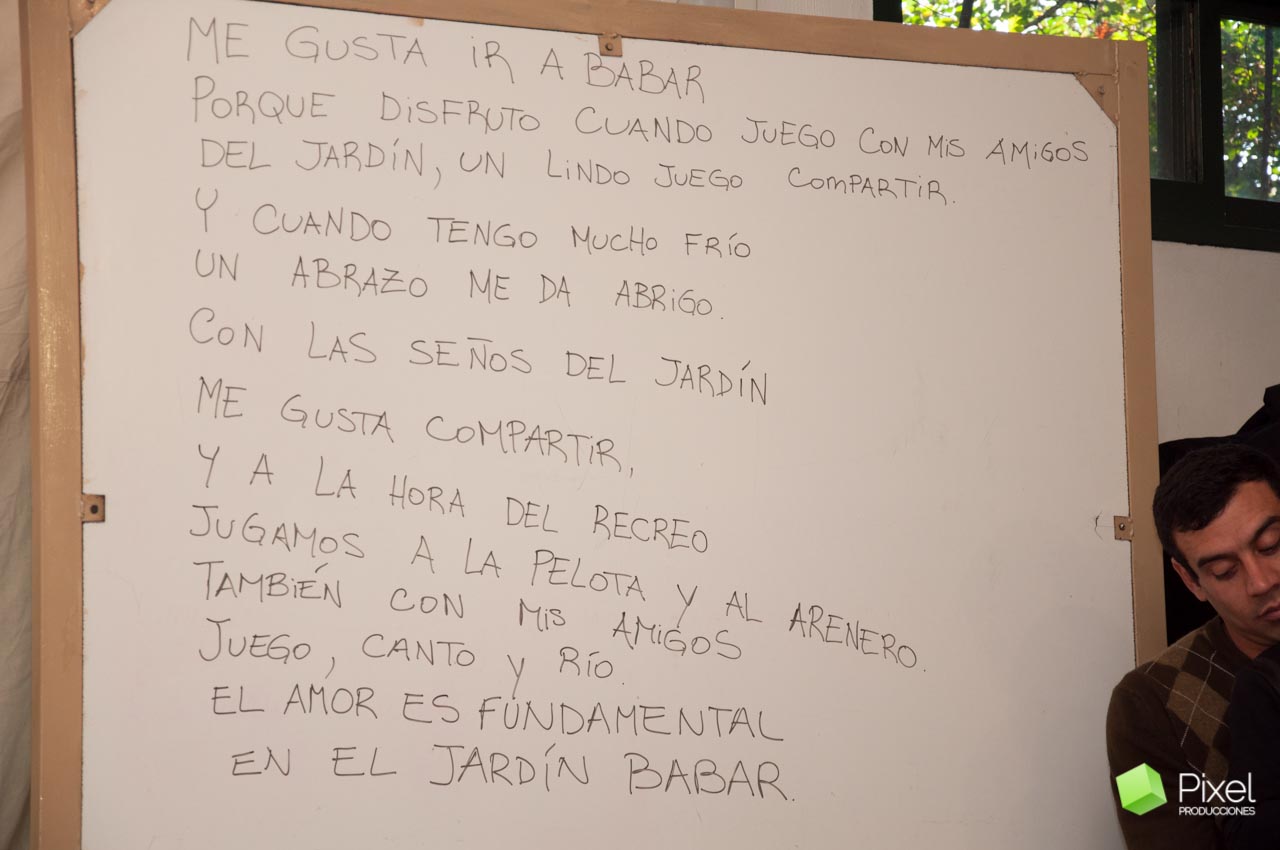 ME GUSTA IR A BABAR
PORQUE DISFRUTO CUANDO JUEGO CON MIS AMIGOS
DEL JARDÍN, UN LINDO JUEGO COMPARTIR.
Y CUANDO TENGO MUCHO FRÍO
UN ABRAZO ME DA ABRIGO.
CON LAS SEÑOS DEL JARDÍN
ME GUSTA COMPARTIR,
Y A LA HORA DEL RECREO
JUGAMOS A LA PELOTA Y AL ARENERO.
TAMBIÉN CON MIS AMIGOS
JUEGO, CANTO Y RÍO.
EL AMOR ES FUNDAMENTAL
EN EL JARDÍN BABAR.
Pixel
PRODUCCIONES